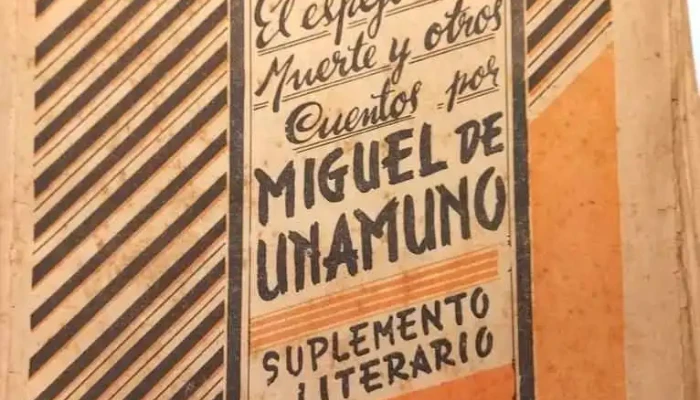 El espejo
Muerte y otros
Cuentos por
MIGUEL DE
UNAMUNO
SUPLEMENTO
LITERARIO